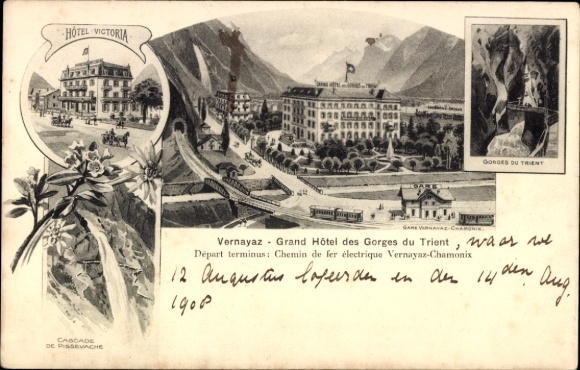 HÔTEL VICTORIA
GRAND HÔTEL DES GORGES DU TRIENT
GORGES DU TRIENT
GARE
GARE VERNAYAZ-CHAMONIX.
Vernayaz - Grand Hôtel des Gorges du Trient, waar we
Départ terminus: Chemin de fer électrique Vernayaz-Chamonix
12 Augustus logeerden en den 14den Aug.
1908
CASCADE
DE PISSEVACHE